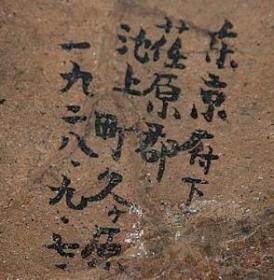 东京府下
荏原郡
池上町久ヶ原
一九二八·九·七·